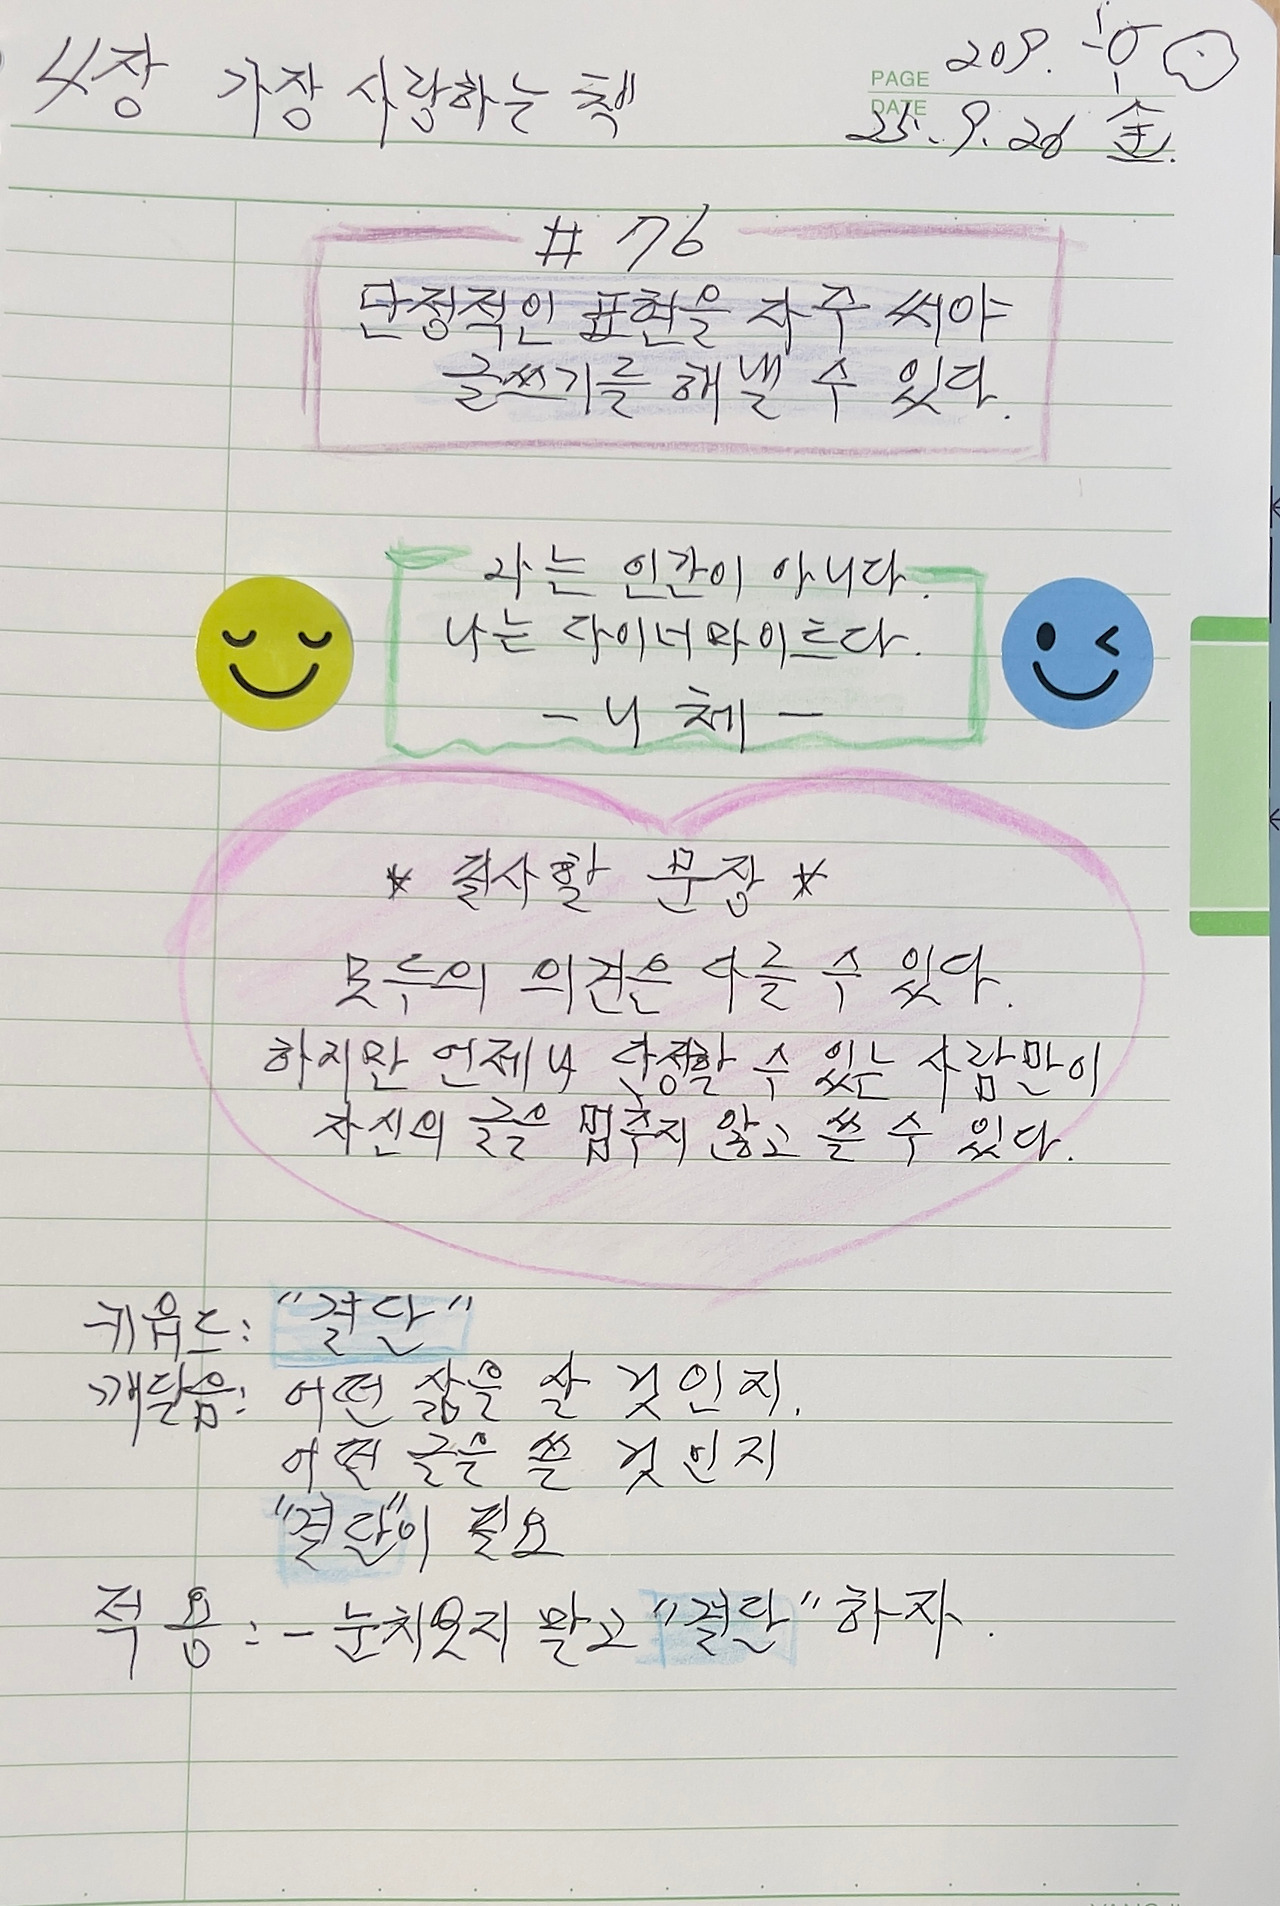 4장 가장 사랑하는 책
PAGE 209.
DATE 25. 9. 26 金.
# 76
단정적인 표현을 자주 써야
글쓰기를 해낼 수 있다.
나는 인간이 아니다.
나는 다이너마이트다.
- 니체 -
* 필사할 문장 *
모두의 의견은 다를 수 있다.
하지만 언제나 단정할 수 있는 사람만이
자신의 글을 멈추지 않고 쓸 수 있다.
키워드: "결단"
깨달음: 어떤 삶을 살 것인지.
어떤 글을 쓸 것인지
"결단"이 필요
적용: - 눈치보지 말고 "결단" 하자.